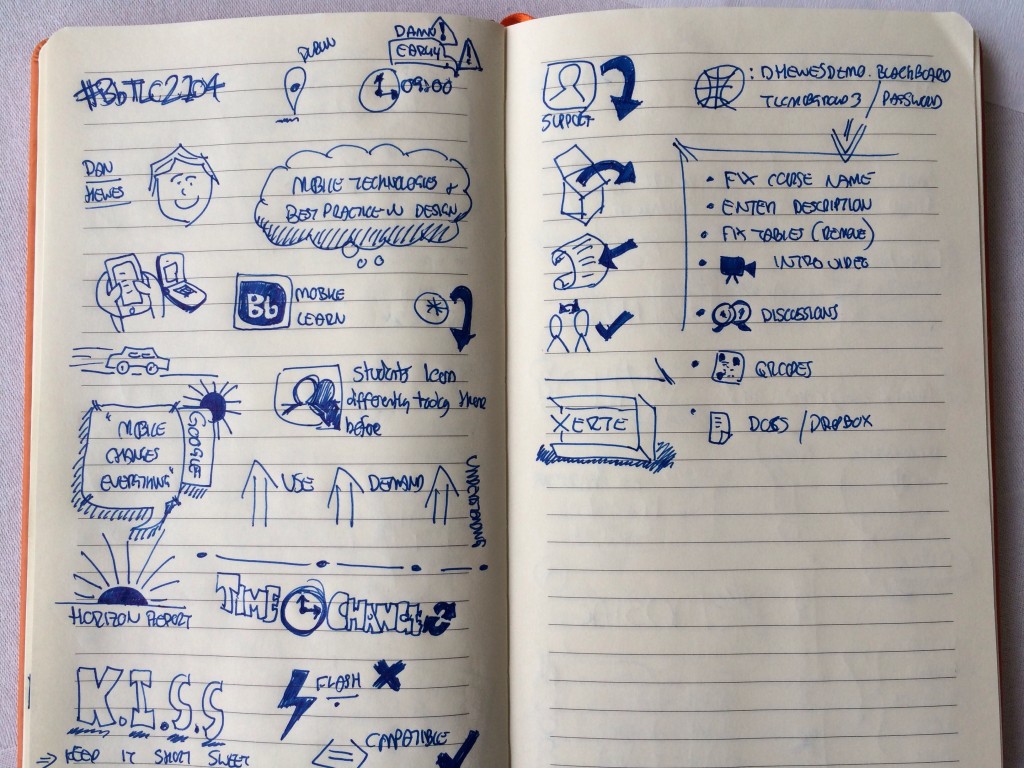 #BbTLC2104
DUBLIN
DAMN !
EARLY !
09:00
DAN
HEWES
MOBILE TECHNOLOGIES &
BEST PRACTICE IN DESIGN
Bb
MOBILE
LEARN
students learn
differently today
before
"MOBILE
CHANGES
EVERYTHING"
GOOGLE
USE
DEMAND
UNDERSTANDING
HORIZON REPORT
TIME
CHANGE
K.I.S.S
FLASH
⇒ KEEP IT SHORT SWEET
COMPATIBLE
SUPPORT
: DHEWESDEMO. BLACKBOARD
/ PASSWORD
• FIX COURSE NAME
• ENTER DESCRIPTION
• FIX TABLES (REMOVE)
• INTRO VIDEO
• DISCUSSIONS
• QR CODES
XERTE
• DOCS / DROPBOX